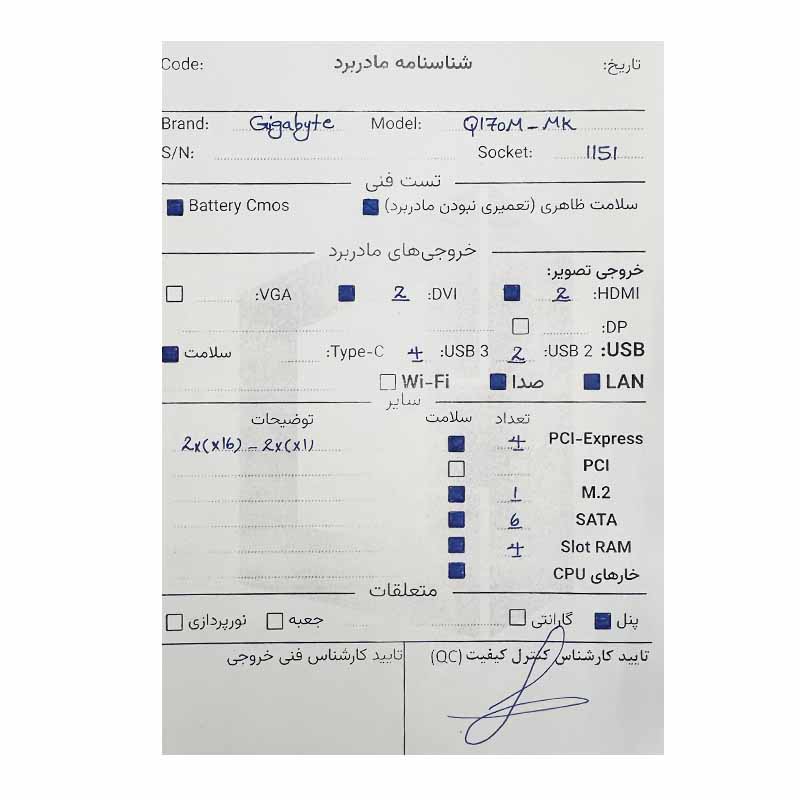 تاریخ: شناسنامه مادربرد Code:
Brand: Gigabyte Model: Q170M-MK
S/N: Socket: 1151
تست فنی
سلامت ظاهری (تعمیری نبودن مادربرد) Battery Cmos
خروجی‌های مادربرد
خروجی تصویر:
HDMI: 2 DVI: 2 VGA:
DP:
USB: USB 2: 2 USB 3: 4 Type-C: سلامت
LAN صدا Wi-Fi
سایر
تعداد سلامت توضیحات
PCI-Express 4 2x(x16) - 2x(x1)
PCI
M.2 1
SATA 6
Slot RAM 4
خارهای CPU
متعلقات
پنل گارانتی جعبه نورپردازی
تایید کارشناس کنترل کیفیت (QC) تایید کارشناس فنی خروجی